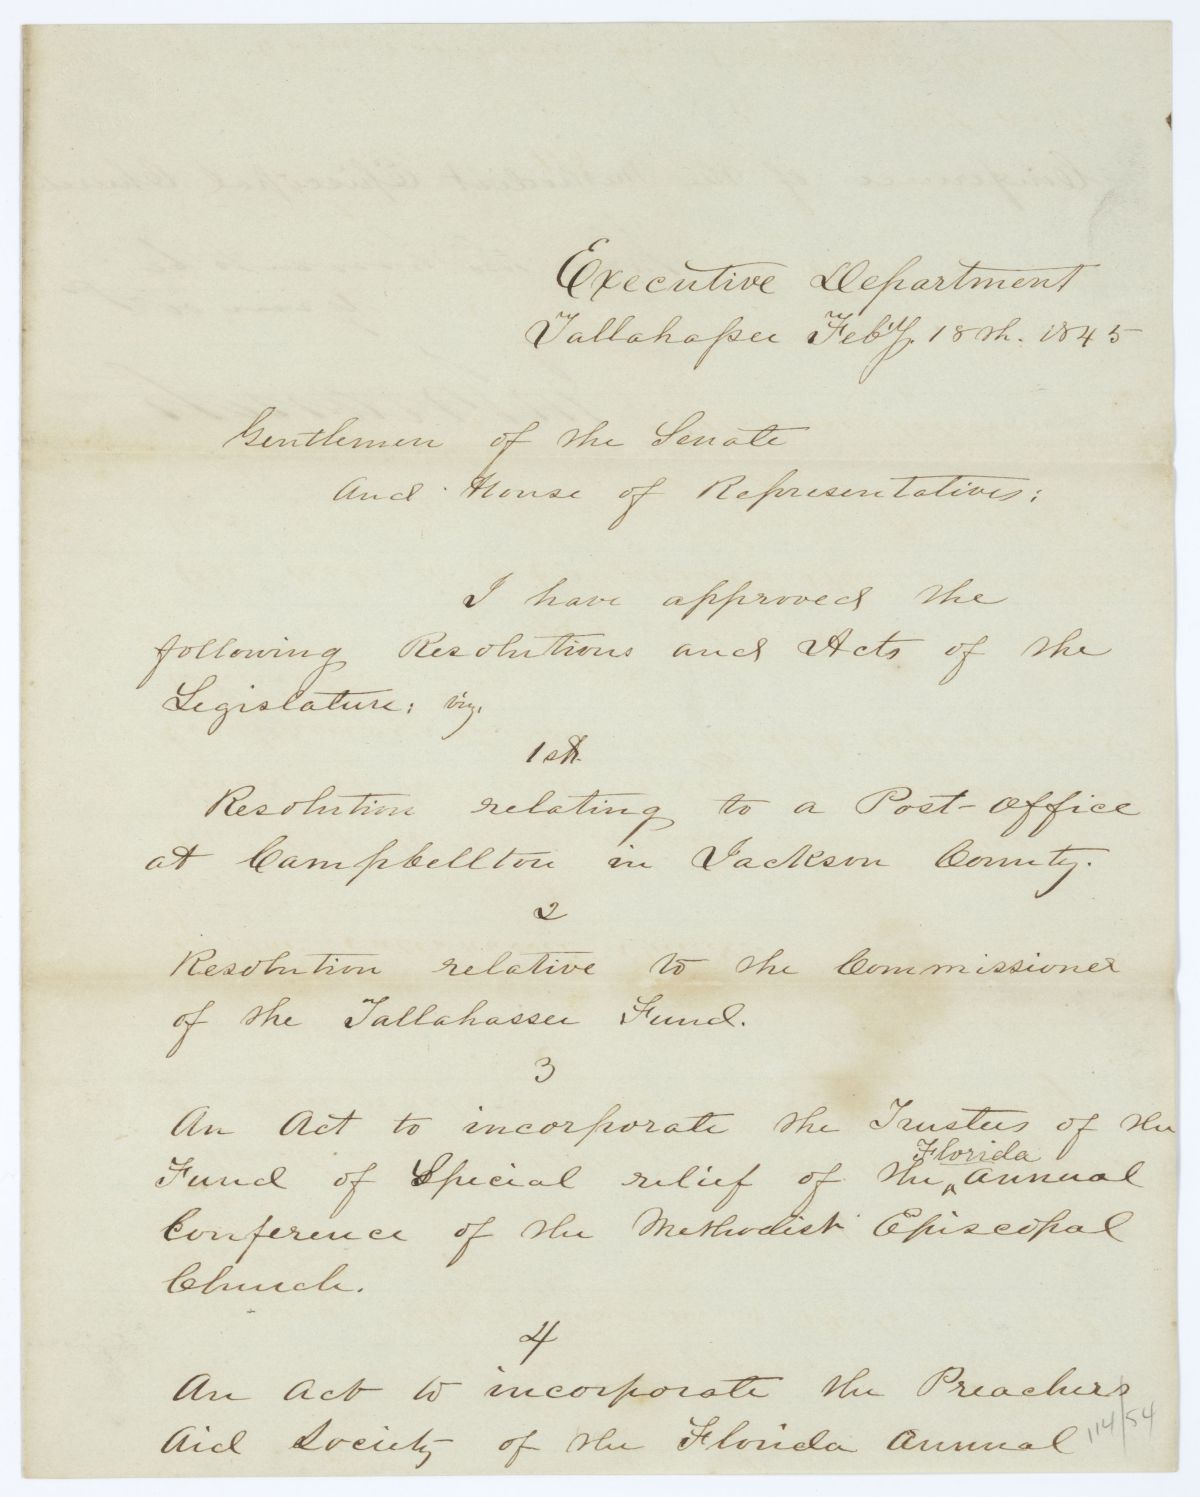 Executive Department
Tallahassee Feb'y. 18th. 1845
Gentlemen of the Senate
and House of Representatives:
I have approved the
following Resolutions and Acts of the
Legislature: viz.
1st.
Resolution relating to a Post-Office
at Campbellton in Jackson County.
2
Resolution relative to the Commissioner
of the Tallahassee Fund.
3
An Act to incorporate the Trustees of the
Florida
Fund of Special relief of the ‸ Annual
Conference of the Methodist Episcopal
Church.
4
An Act to incorporate the Preachers
Aid Society of the Florida Annual
114/54